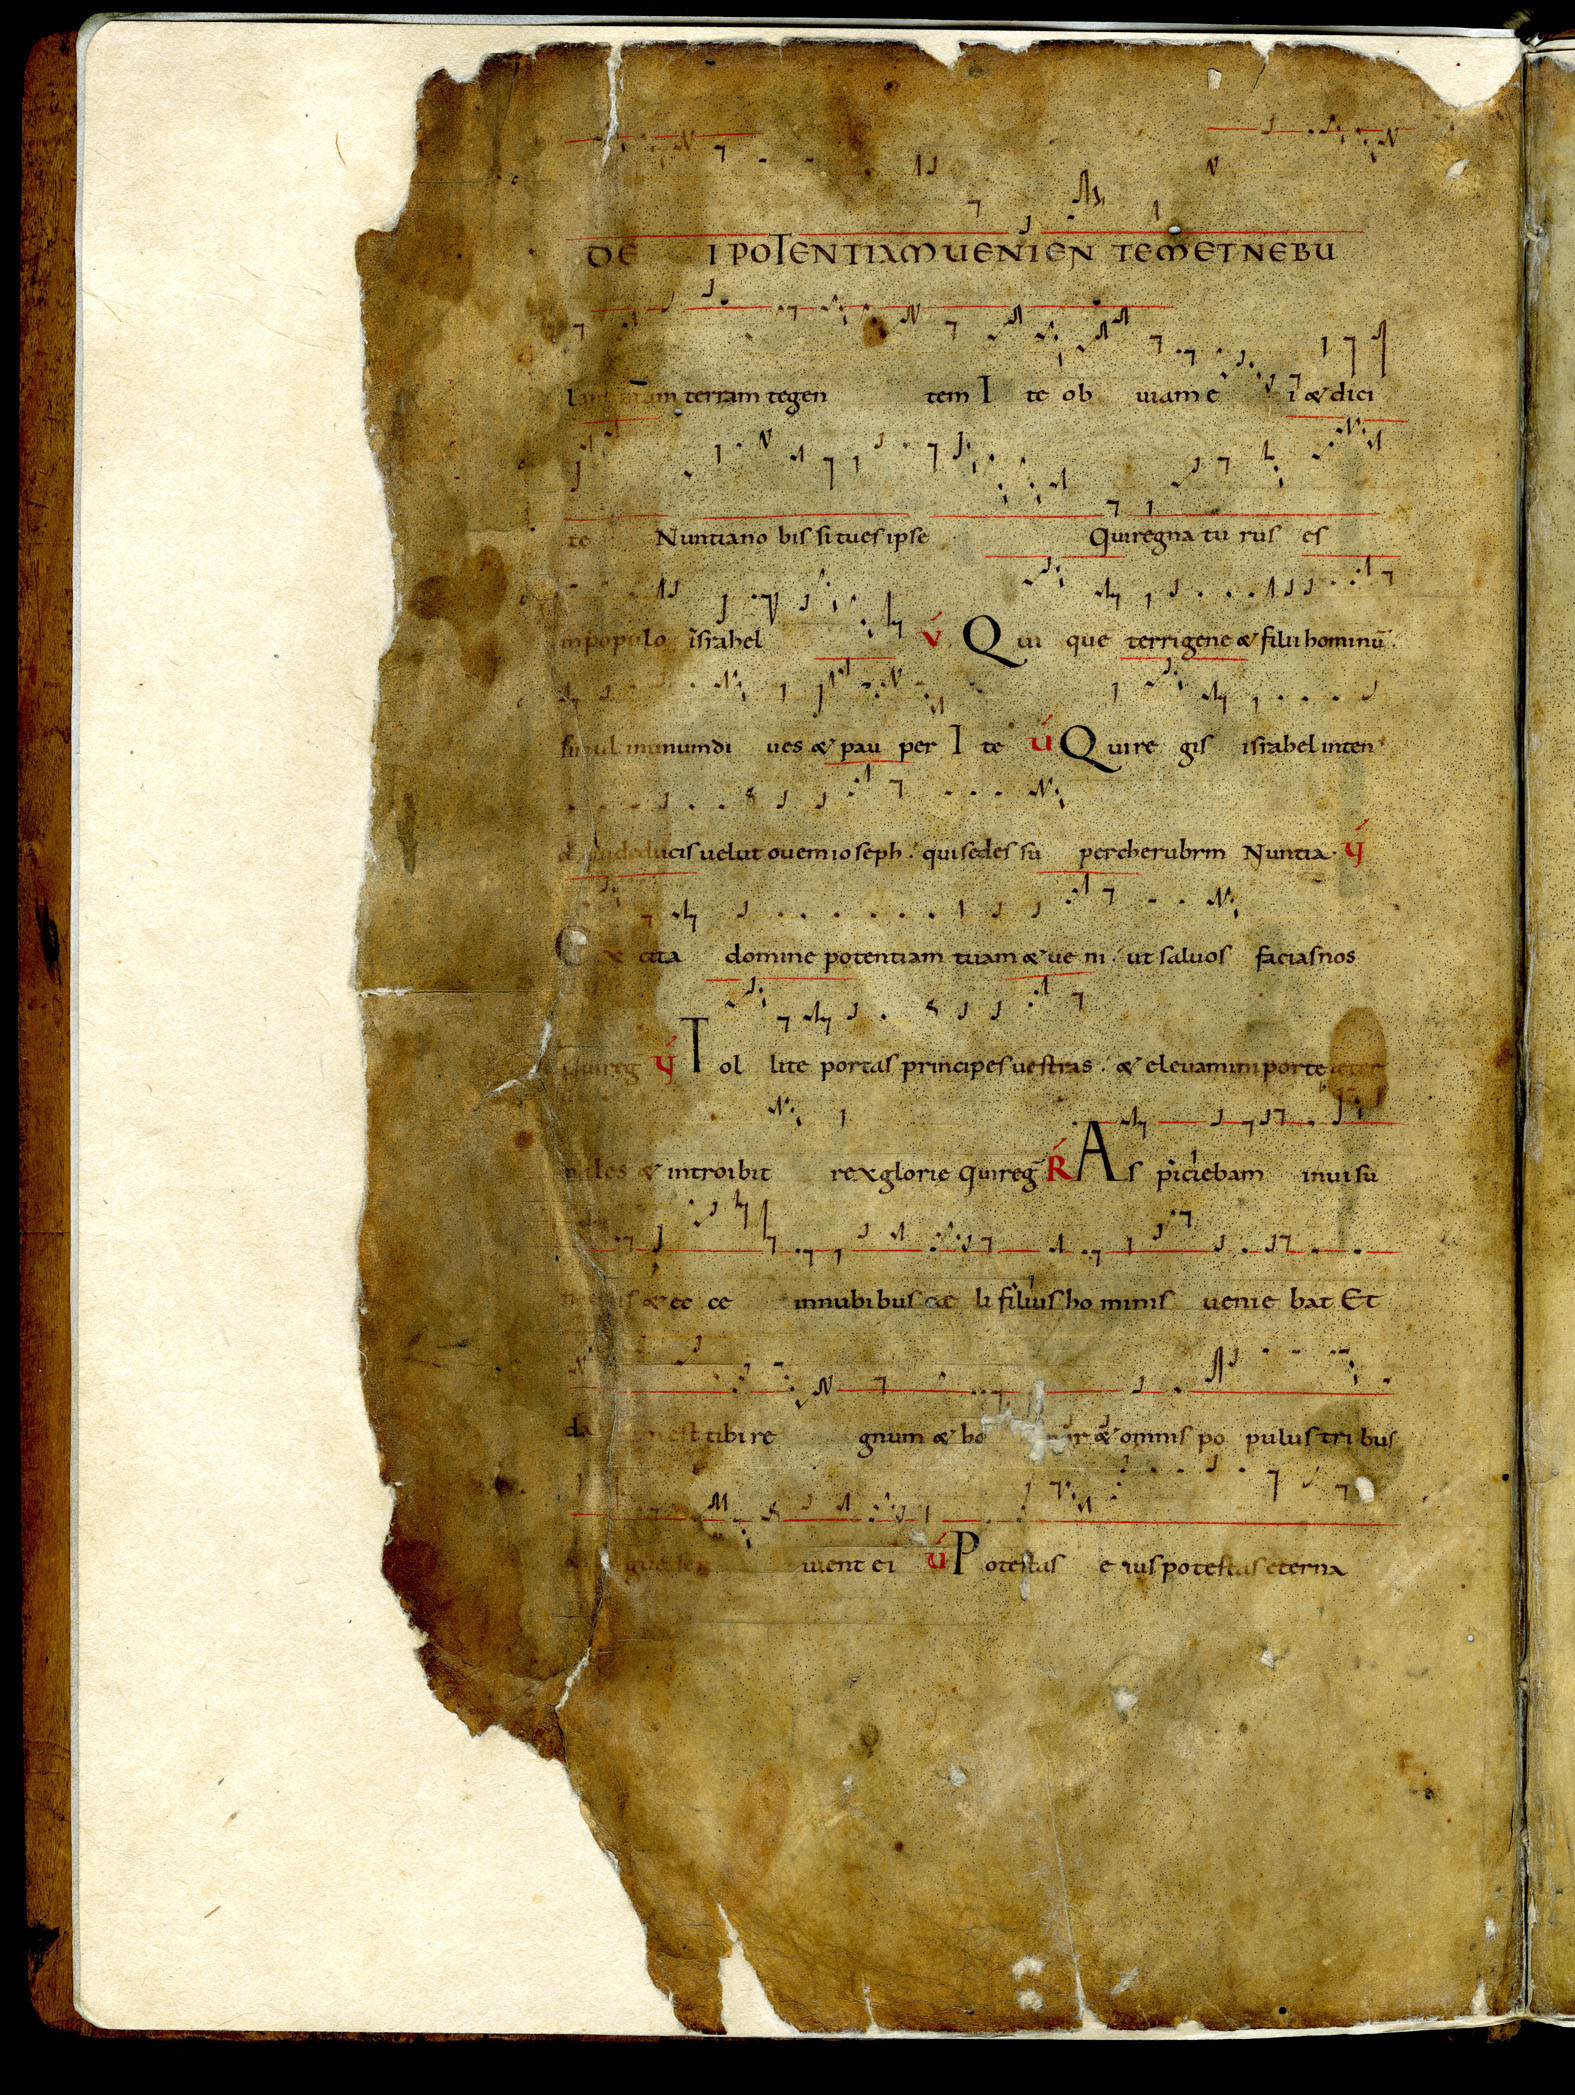 DE I POTENTIAM UENIEN TEM ET NEBU
lam totam terram tegen tem I te ob uiam e i & dici
te Nuntia no bis si tu es ipse Qui regna tu rus es
in populo israhel V Qui que terrigene & filii hominū
simul in unum di ues & pau per I te V Qui re gis israhel inten
de qui deducis uelut ouem ioseph qui sedes su per cherubim Nuntia V
Ex cita domine potentiam tuam & ue ni ut saluos facias nos
Qui reg V Tol lite portas principes uestras & eleuamini porte eter
nales & introibit rex glorie Qui reg̅ R As piciebam in ui su
noctis & ec ce in nubibus ce li filius ho minis uenie bat Et
da est tibi re gnum & ho & omnis po pulus tri bus
uient ei V Potestas e ius potestas eterna